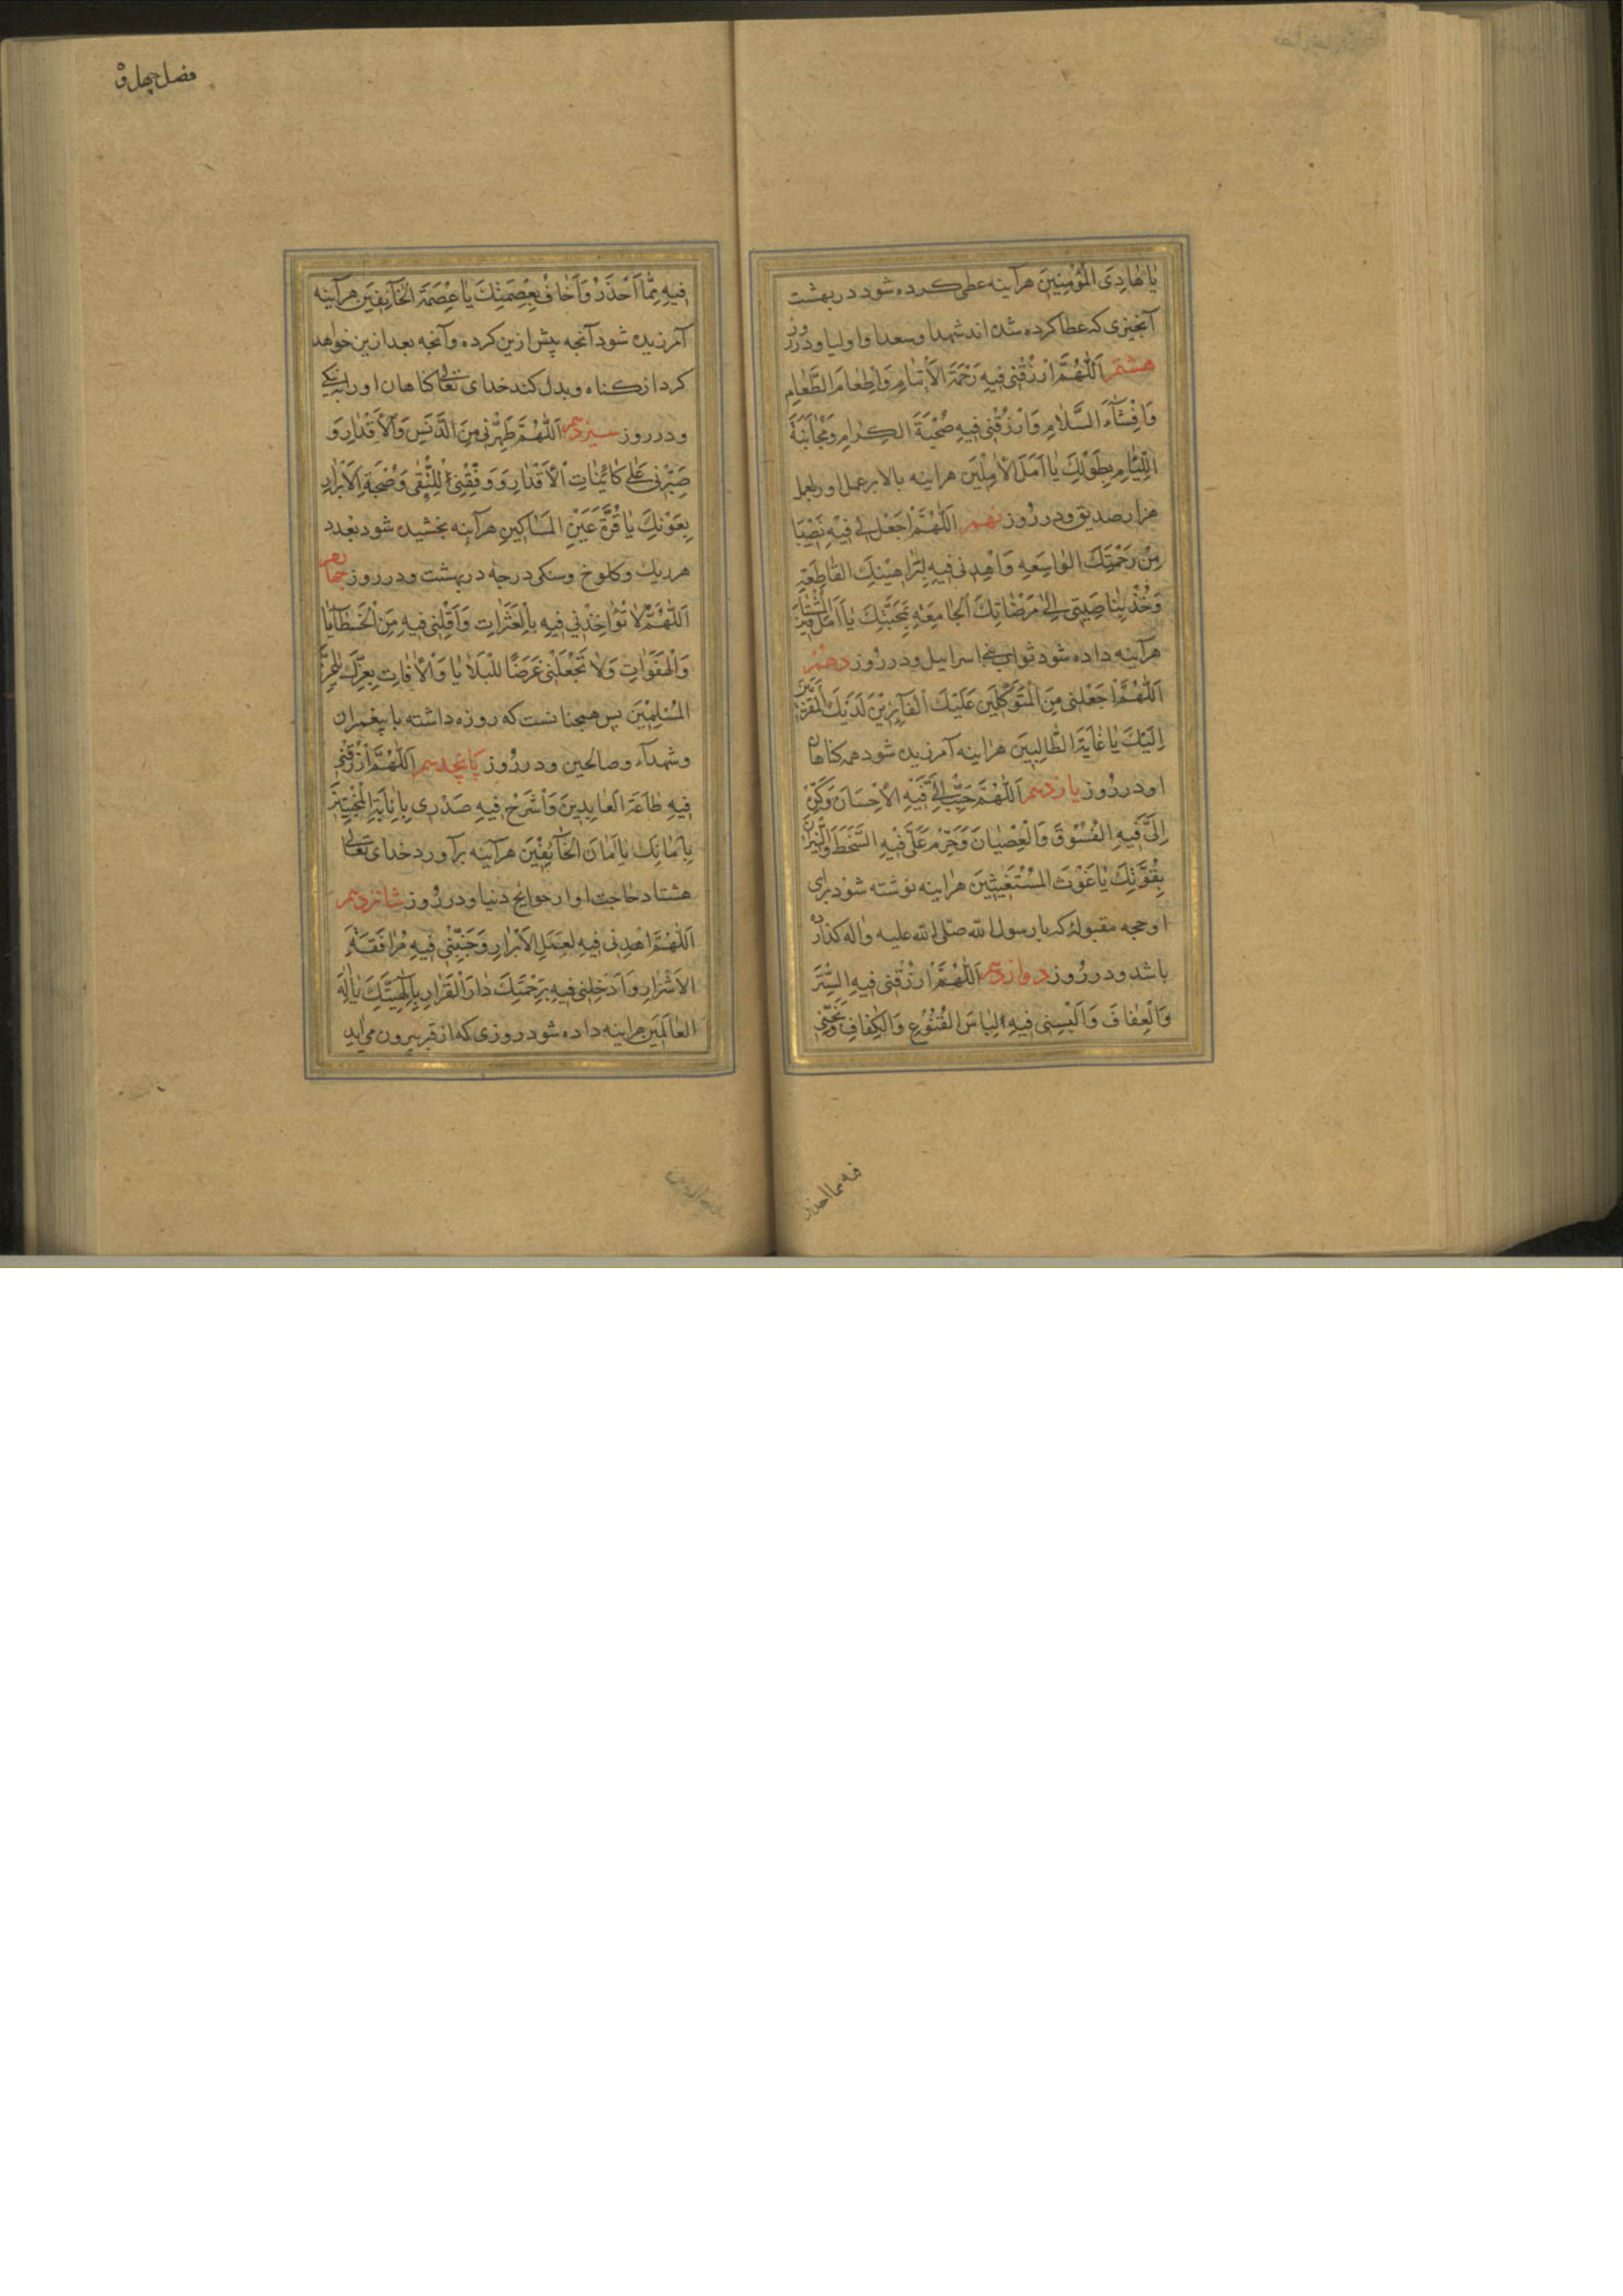 يٰا هٰادِىَ الْمُؤْمِنِيْنَ هرآینه عطی کرده شود در بهشت
آنچیزی که عطا کرده شده اند شهدا و سعدا و اولیا و در روز
هشتم اَللّٰهُمَّ ارْزُقْنِى فِيهِ رَحْمَةَ الْاَيْتٰامِ وَاِطْعٰامَ الطَّعٰامِ
وَاِفْشٰآءَ السَّلٰامِ وَارْزُقْنِى فِيهِ صُحْبَةَ الْكِرٰامِ وَمُجٰانَبَةَ
اللِّئٰامِ بِطَوْلِكَ يٰا اَمَلَ الْاٰمِلِيْنَ هرآینه بالا بر عمل او بعمل
هزار صدیق و در روز نهم اَللّٰهُمَّ اجْعَلْ لِى فِيْهِ نَصْيْبًا
مِنْ رَحْمَتِكَ الْوٰاسِعَهِ وَاهْدِنِى فِيهِ لِبَرٰاهِيْنِكَ الْقٰاطِعَةِ
وَخُذْ بِنٰاصِيَتِى اِلىٰ مَرْضٰاتِكَ الْجٰامِعَهِ بِمَحَبَّتِكَ يٰا اَمَلَ الْمُشْتٰاقِيْنَ
هرآینه داده شود ثواب بنی اسرائیل و در روز دهم
اَللّٰهُمَّ اجْعَلْنِى مِنَ الْمُتَوَكِّلِيْنَ عَلَيْكَ الْفٰآئِزِيْنَ لَدَيْكَ الْمُقَرَّبِيْنَ
اِلَيْكَ يٰا غٰايَةَ الطّٰالِبِيْنَ هرآینه آمرزیده شود همه کناهان
او و در روز یازدهم اَللّٰهُمَّ حَبِّبْ اِلَىَّ فِيْهِ الْاِحْسَانَ وَكَرِّهْ
اِلَىَّ فِيهِ الْفُسُوْقَ وَالْعِصْيٰانَ وَحَرِّمْ عَلَىَّ فِيْهِ السَّخَطَ وَالنِّيْرٰانَ
بِقُوَّتِكَ يٰا غَوْثَ الْمُسْتَغِيْثِيْنَ هرآینه نوشته شود برای
او حجه مقبوله که با رسول الله صلی الله علیه واله کذارده
باشد و در روز دوازدهم اَللّٰهُمَّ ارْزُقْنِى فِيهِ السِّتْرَ
وَالْعِفٰافَ وَاَلْبِسْنِى فِيهِ لِبٰاسَ الْقُنُوْعِ وَالْكِفٰافِ وَنَجِّنِى
فه مما احذر
فصل چهل و
فِيهِ مِمّٰا اَحْذَرُ وَاَخٰافُ بِعِصْمَتِكَ يٰا عِصْمَةَ الْخٰآئِفِيْنَ هرآینه
آمرزیده شود آنچه پیش ازین کرده و آنچه بعد ازین خواهد
کرد از کناه و بدل کند خدای تعالی کناهان او را به نیکی
و در روز سیزدهم اَللّٰهُمَّ طَهِّرْنِى مِنَ الدَّنَسِ وَالْاَقْذٰارِ وَ
صَبِّرْنِى عَلىٰ كٰائِنٰاتِ الْاَقْدٰارِ وَ وَفِّقْنِى لِلتُّقىٰ وَصُحْبَةِ الْاَبْرٰارِ
بِعَوْنِكَ يٰا قُرَّةَ عَيْنِ الْمَسٰاكِيْنِ هرآینه بخشیده شود بعدد
هر ریک و کلوخ و سنکی درجه در بهشت و در روز چهاردهم
اَللّٰهُمَّ لٰا تُؤٰاخِذْنِى فِيْهِ بِالْعَثَرٰاتِ وَاَقِلْنِى فِيهِ مِنَ الْخَطٰآيٰا
وَالْهَفَوٰاتِ وَلٰا تَجْعَلْنِى غَرَضًا لِلْبَلٰايٰا وَالْاٰفٰاتِ بِعِزِّكَ يٰا عِزَّ
الْمُسْلِمِيْنَ پس همچنانست که روزه داشته با پیغمبران
و شهدآء و صالحین و در روز پانجدهم اَللّٰهُمَّ ارْزُقْنِى
فِيهِ طٰاعَةَ الْعٰابِدِيْنَ وَاشْرَحْ فِيهِ صَدْرِى بِاِنٰابَةِ الْمُخْبِتِيْنَ
بِاَمٰانِكَ يٰا اَمٰانَ الْخٰآئِفِيْنَ هرآینه برآورد خدای تعالی
هشتاد حاجت او از حوایج دنیا و در روز شانزدهم
اَللّٰهُمَّ اهْدِنِى فِيهِ لِعَمَلِ الْاَبْرٰارِ وَجَنِّبْنِى فِيهِ مُرٰافَقَةَ
الْاَشْرٰارِ وَاَدْخِلْنِى فِيهِ بِرَحْمَتِكَ دٰارَ الْقَرٰارِ بِاِلٰهِيَّتِكَ يٰا اِلٰهَ
الْعٰالَمِيْنَ هرآینه داده شود روزی که از قبر بیرون می آید